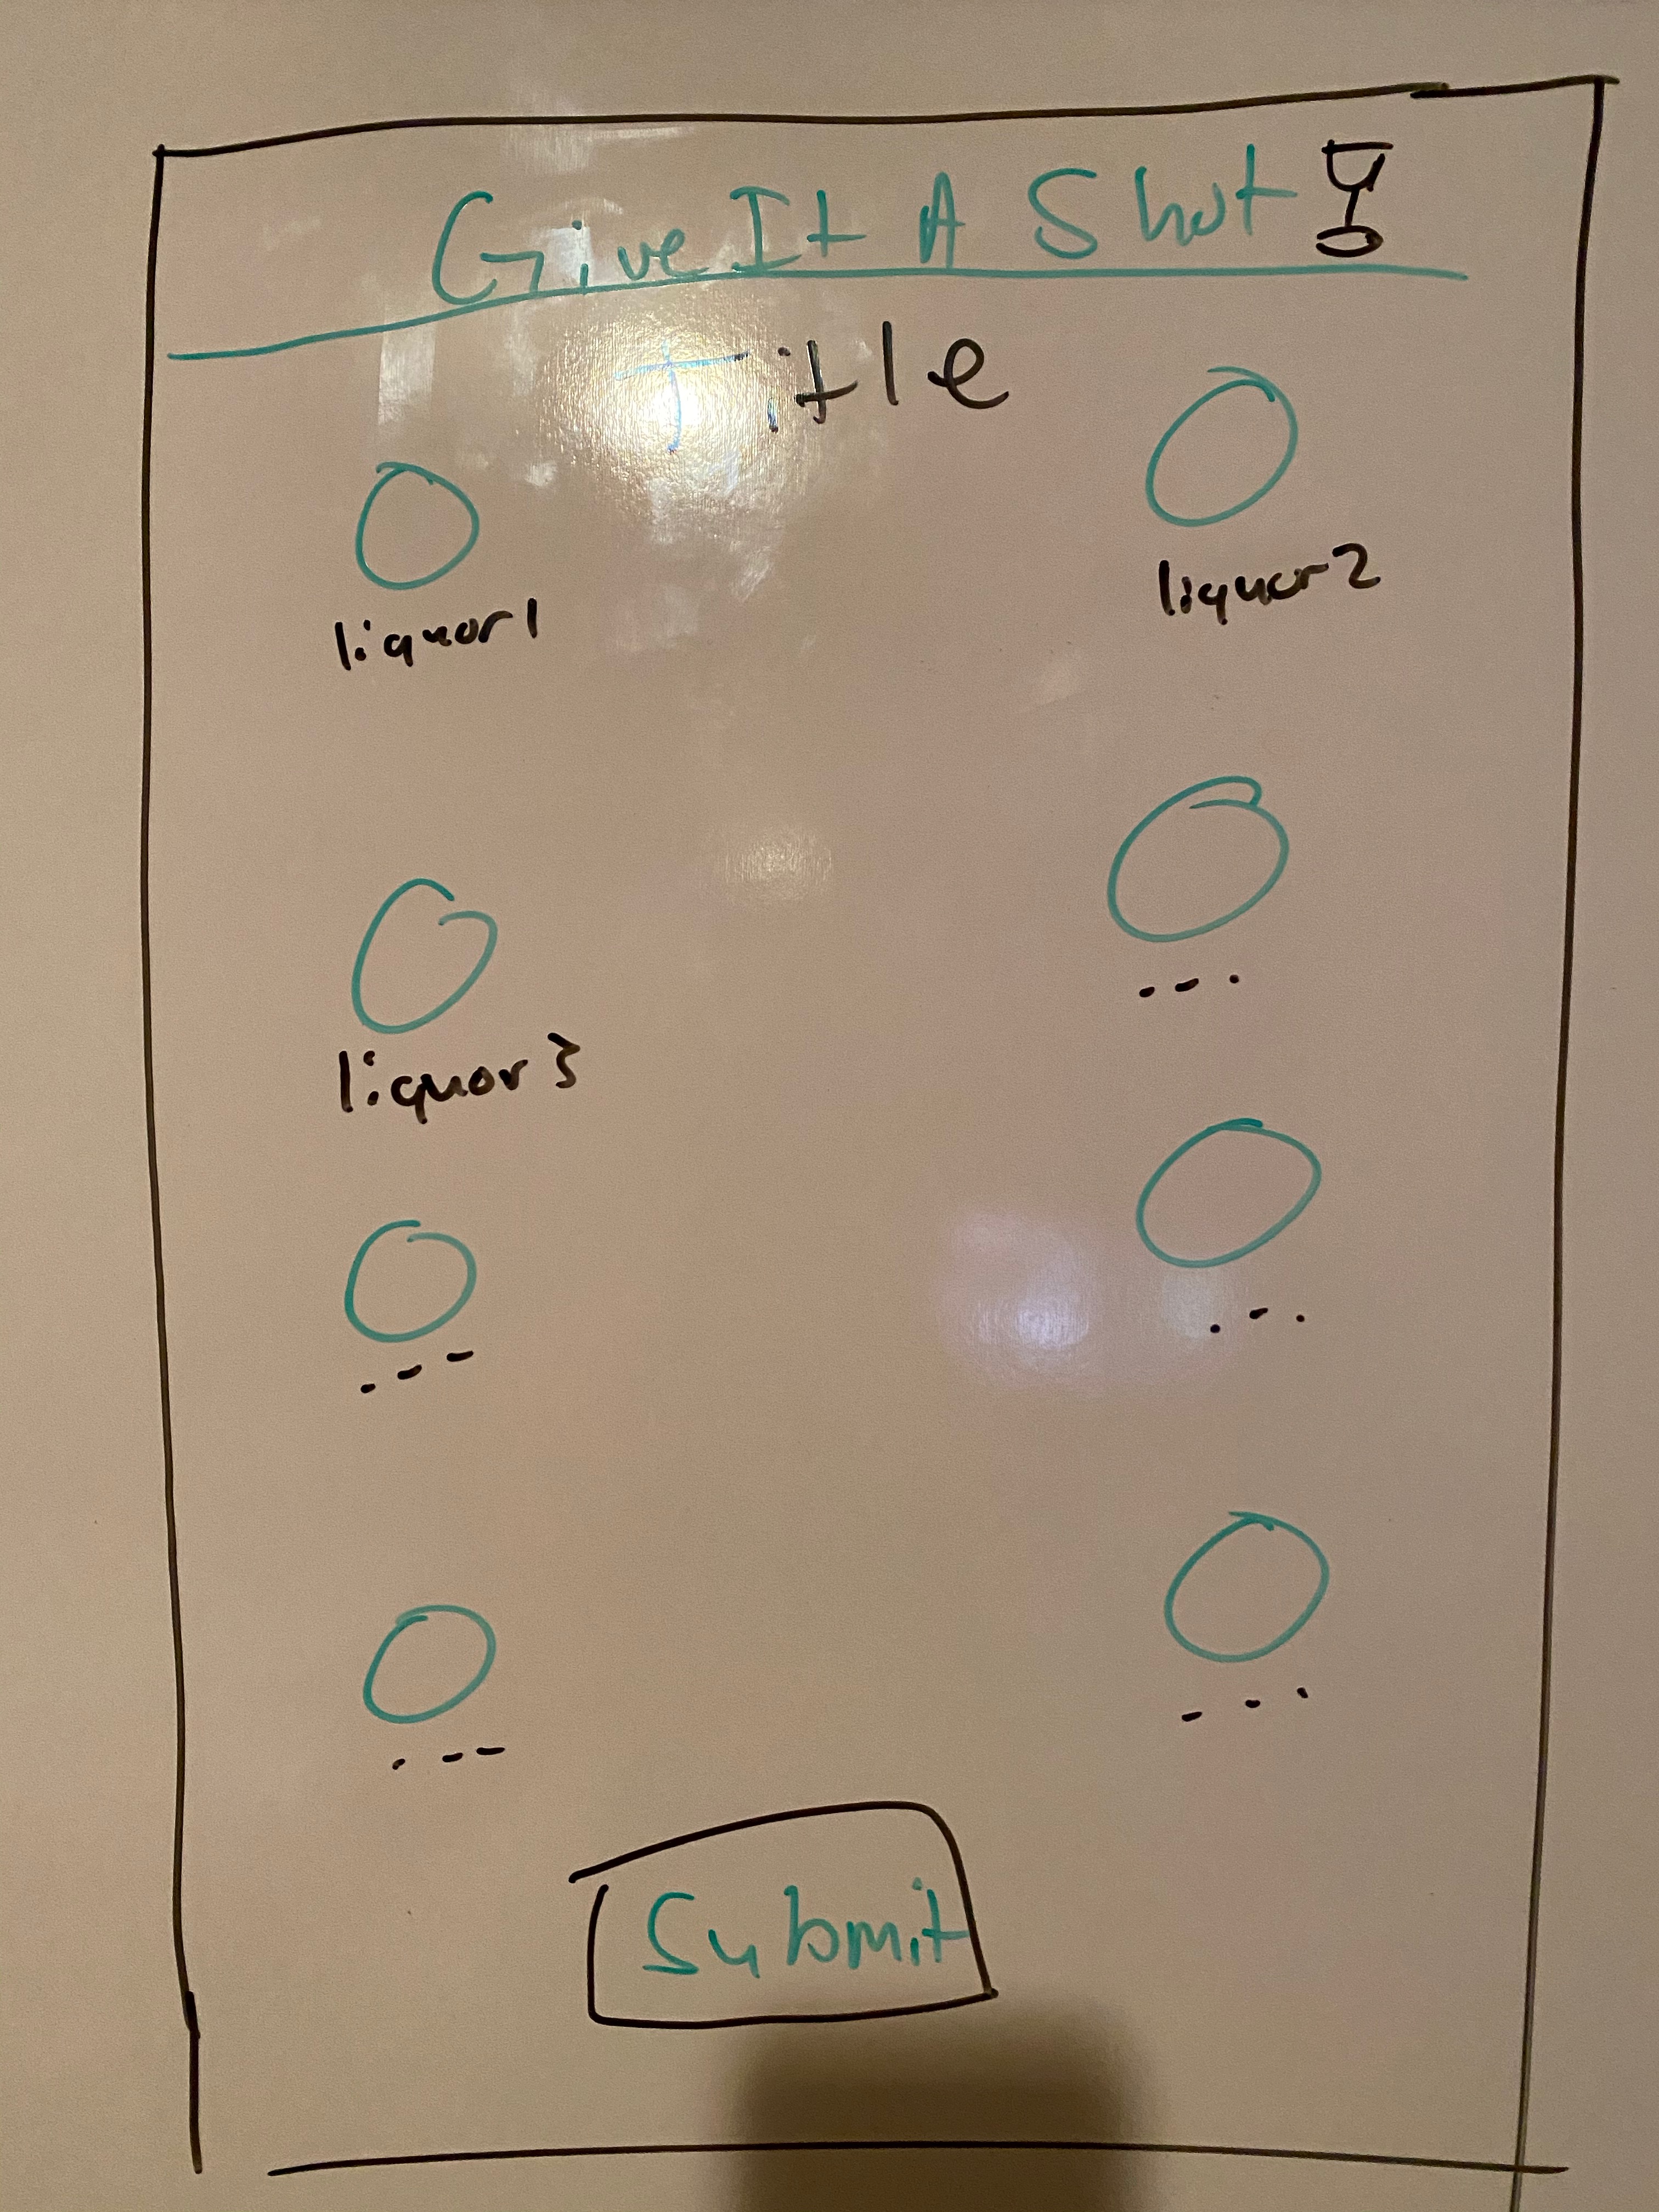 Give It A Shot
Title
liquor1
liquor2
...
liquor3
...
...
...
...
Submit